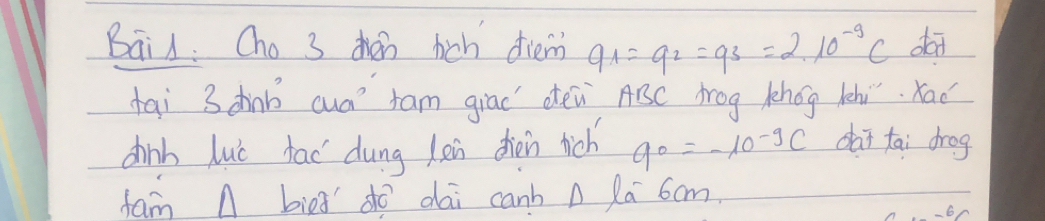 Bài 1: Cho 3 điện tích điểm q1 = q2 = q3 = 2.10⁻⁹ C đặt
tại 3 đỉnh của tam giác đều ABC trog khôg khí. Xác
định lực tác dụng lên điện tích q0 = -10⁻⁹C đặt tại trog
tâm Δ biết độ dài cạnh Δ là 6cm.